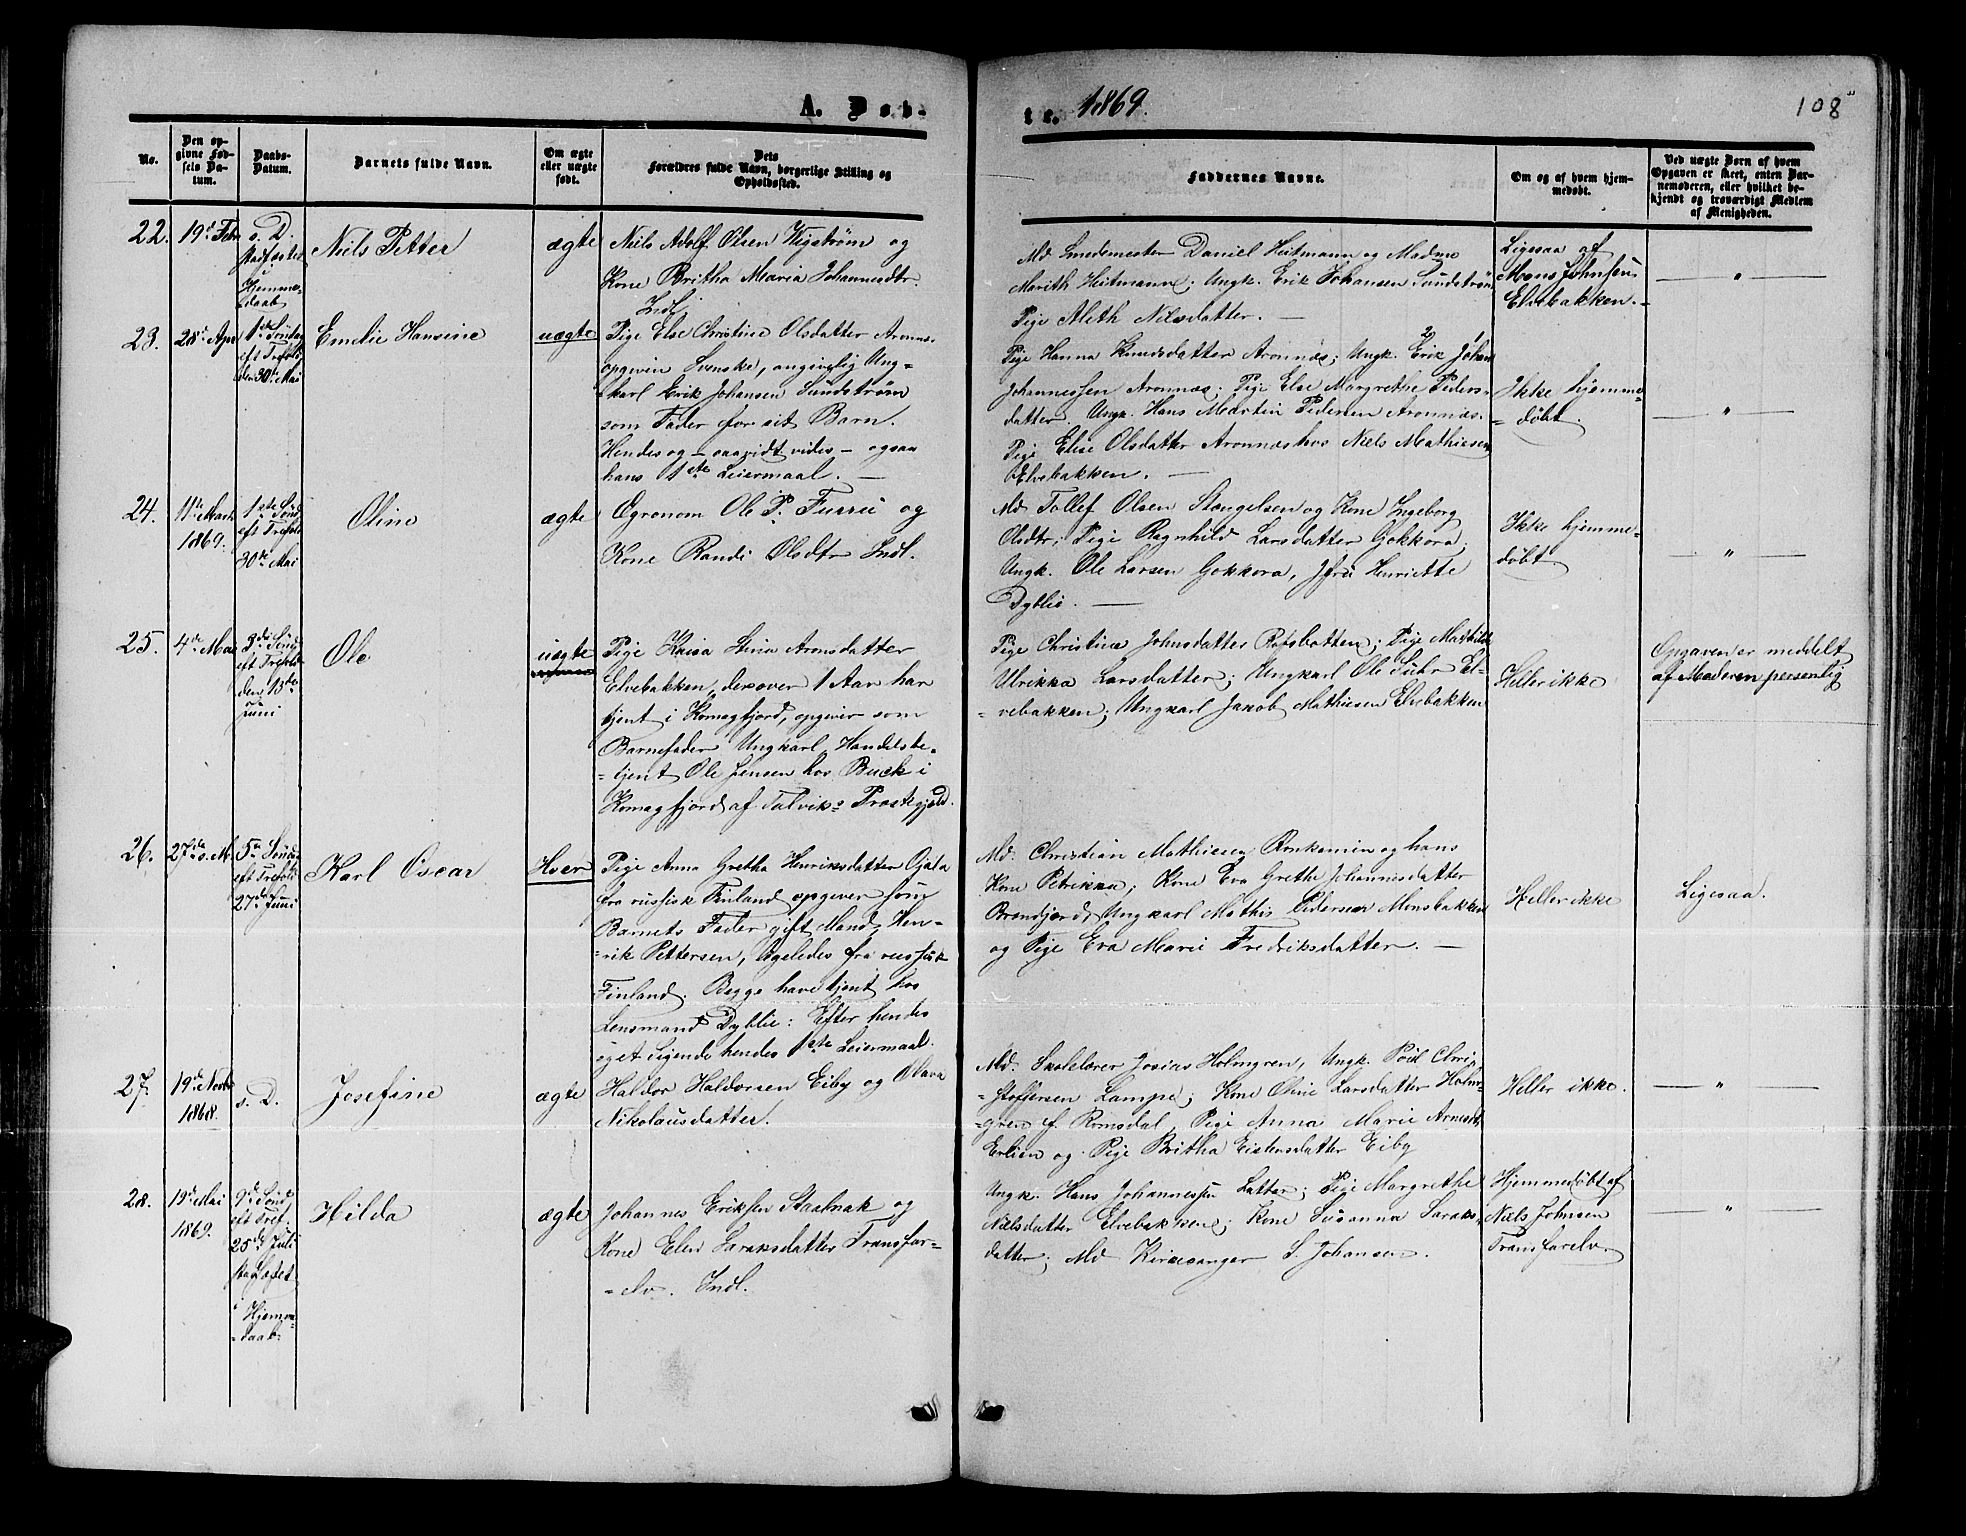 A. Døb-
te. 1869.
108
No.
Den op-
givne Fød-
sels Da-
tum.
Daabs-
Datum.
Barnets fulde Navn.
Om ægte
eller uægte
født.
Dets
Forældres fulde Navn, borgerlige Stilling og
Opholdssted.
Faddernes Navne.
Om og af hvem hjem-
medøbt.
Ved uægte Børn af hvem
Opgaven er skeet, enten Bar-
nemoderen, eller hvilket be-
kjendt og troværdigt Medlem
af Menigheden.
22.
19de Febr
s. D.
stadfæstet
Hjemme-
daab
Niels Petter
ægte
Niels Adolf Olsen Wigstrøm og
Kone Britha Maria Johannesdtr.
Indl.
Md Smedemester Daniel Heitmann og Madme
Marith Heitmann; Ungk. Erik Johansen Sundstrøm
Pige Aleth Nilsdatter. —
Ligesaa af
Mons Johnsen
Elvebakken.
— " —
23.
28de Apr
1ste Søndag
eft Trefold
den 30te Mai
Emelie Hansine
uægte
Pige Else Christine Olsdatter Aronnæs.
opgiven Svenske, angivelig Ung-
karl Erik Johansen Sundstrøm
som Fader for sit Barn.
Hendes og – saavidt vides – ogsaa
hans 1ste Leiermaal. —
Pige Hanna Knudsdatter Aronnæs; Ungk. Erik Johan
Johannessen Aronnæs; Pige Else Margrethe Peders-
datter, Ungk. Hans Martin Pedersen Aronnæs.
Pige Elise Olsdatter Aronnæs hos Niels Mathiesen
Elvebakken. —
Ikke hjemme-
døbt.
— " —
24.
11te Marts
1869.
1ste Sønd
eft Trefold
30te Mai
Oline
ægte
Ogronom Ole P. Furru og
Kone Randi Olsdtr Indl.
Md Tollef Olsen Stengelsen og Kone Ingeborg
Olsdtr; Pige Ragnhild Larsdatter Gokkora;
Ungk. Ole Larsen Gokkora, Jfru Henriette
Dyblie. —
Ikke hjemme-
døbt.
— " —
25.
4de Mai
3die Sønd
eft Trefold
den 13de
Juni
Ole
uægte
Pige Kaisa Stina Aronsdatter
Elvebakken, der over 1 Aar har
tjent i Komagfjord, opgiver som
Barnefader Ungkarl, Handelsbe-
-tjent Ole Jensen hos Buck i
Komagfjord af Talviks Prestegjeld.
Pige Christine Johnsdatter Rafsbotten; Pige Mathilde
Ulrikka Larsdatter; Ungkarl Ole Suhr El-
-vebakken; Ungkarl Jakob Mathiesen Elvebakken
Heller ikke
Opgaven er meddelt
af Moderen personlig
26.
27de s. M.
5te Sønd
eft Trefold
27de Juni
Karl Oscar
Hoer
Pige Anna Gretha Henriksdatter Ojala
fra russisk Finland opgiver som
Barnets Fader gift Mand, Hen-
-rik Pettersen, ligeledes fra russisk
Finland. Begge have tjent hos
Lensmand Dyblie: Efter hendes
eget Sigende hendes 1ste Leiermaal.
Md. Christian Mathiesen Ronkamin og hans
Kone Petrikka; Kone Eva Grethe Johannesdatter
Ungkarl Mathis Pedersen Monsbakken
og Pige Eva Marie Fredriksdatter. —
Heller ikke
Ligesaa.
27.
19de Novbr
1868.
s. D.
Josefine
ægte
Haldor Haldorsen Eiby og Olava
Nikolausdatter.
Md. Skolelærer Josias Holmgren, Ungk. Poul Chri-
-stoffersen Lampe; Kone Oline Larsdatter Holm-
-gren f. Romsdal, Pige Anna Marie Arnesdtr
Erlien og Pige Britha Eistensdatter Eiby
Heller ikke.
— " —
28.
19de Mai
1869.
9de Sønd
eft Tref.
25de Juli
stadfæstet
Hjemme
-daab-
Hilda
ægte
Johannes Eriksen Staalnak og
Kone Elen Saraksdatter Transfar-
-elv. Indl.
Ungk. Hans Johannessen Latter; Pige Margrethe
Nielsdatter Elvebakken; Kone Susanna Saraks-
datter; Md Kirkesanger S. Johansen.
Hjemmedøbt af
Niels Johnsen
Transfarelv.
— " —